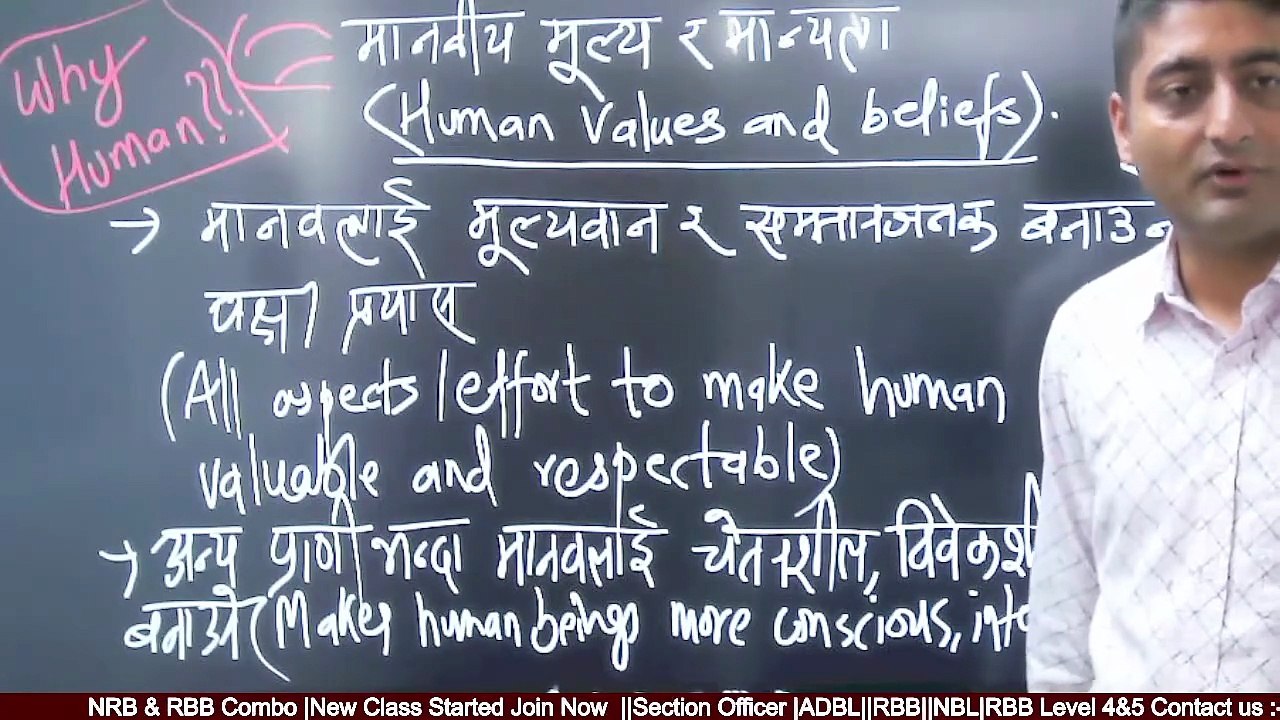 Why
Human??
मानवीय मूल्य र मान्यता
(Human Values and beliefs).
→ मानवलाई मूल्यवान र सम्मानजनक बनाउन
पक्ष/प्रयास
(All aspects/effort to make human
valuable and respectable)
→ अन्य प्राणी भन्दा मानवलाई चेतनशील, विवेकशी
बनाउने (Makes human beings more conscious, inte
NRB & RBB Combo |New Class Started Join Now ||Section Officer |ADBL||RBB||NBL|RBB Level 4&5 Contact us :-